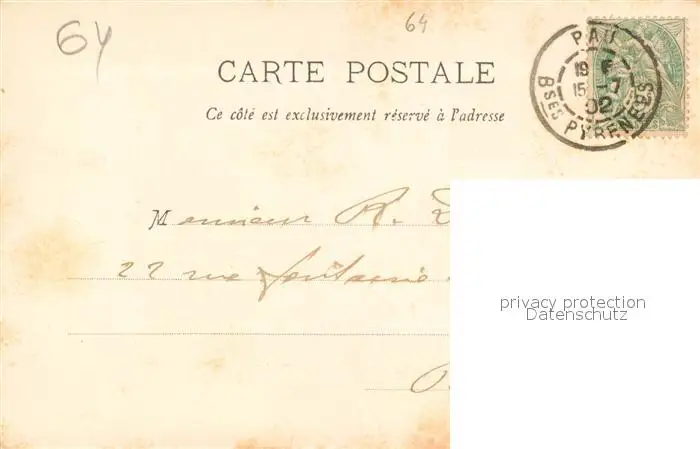 64
64
CARTE POSTALE
Ce côté est exclusivement réservé à l'adresse
PAU
19 E
15 -7
02
Bses PYRENEES
Monsieur R.
22 rue fontaine
privacy protection
Datenschutz